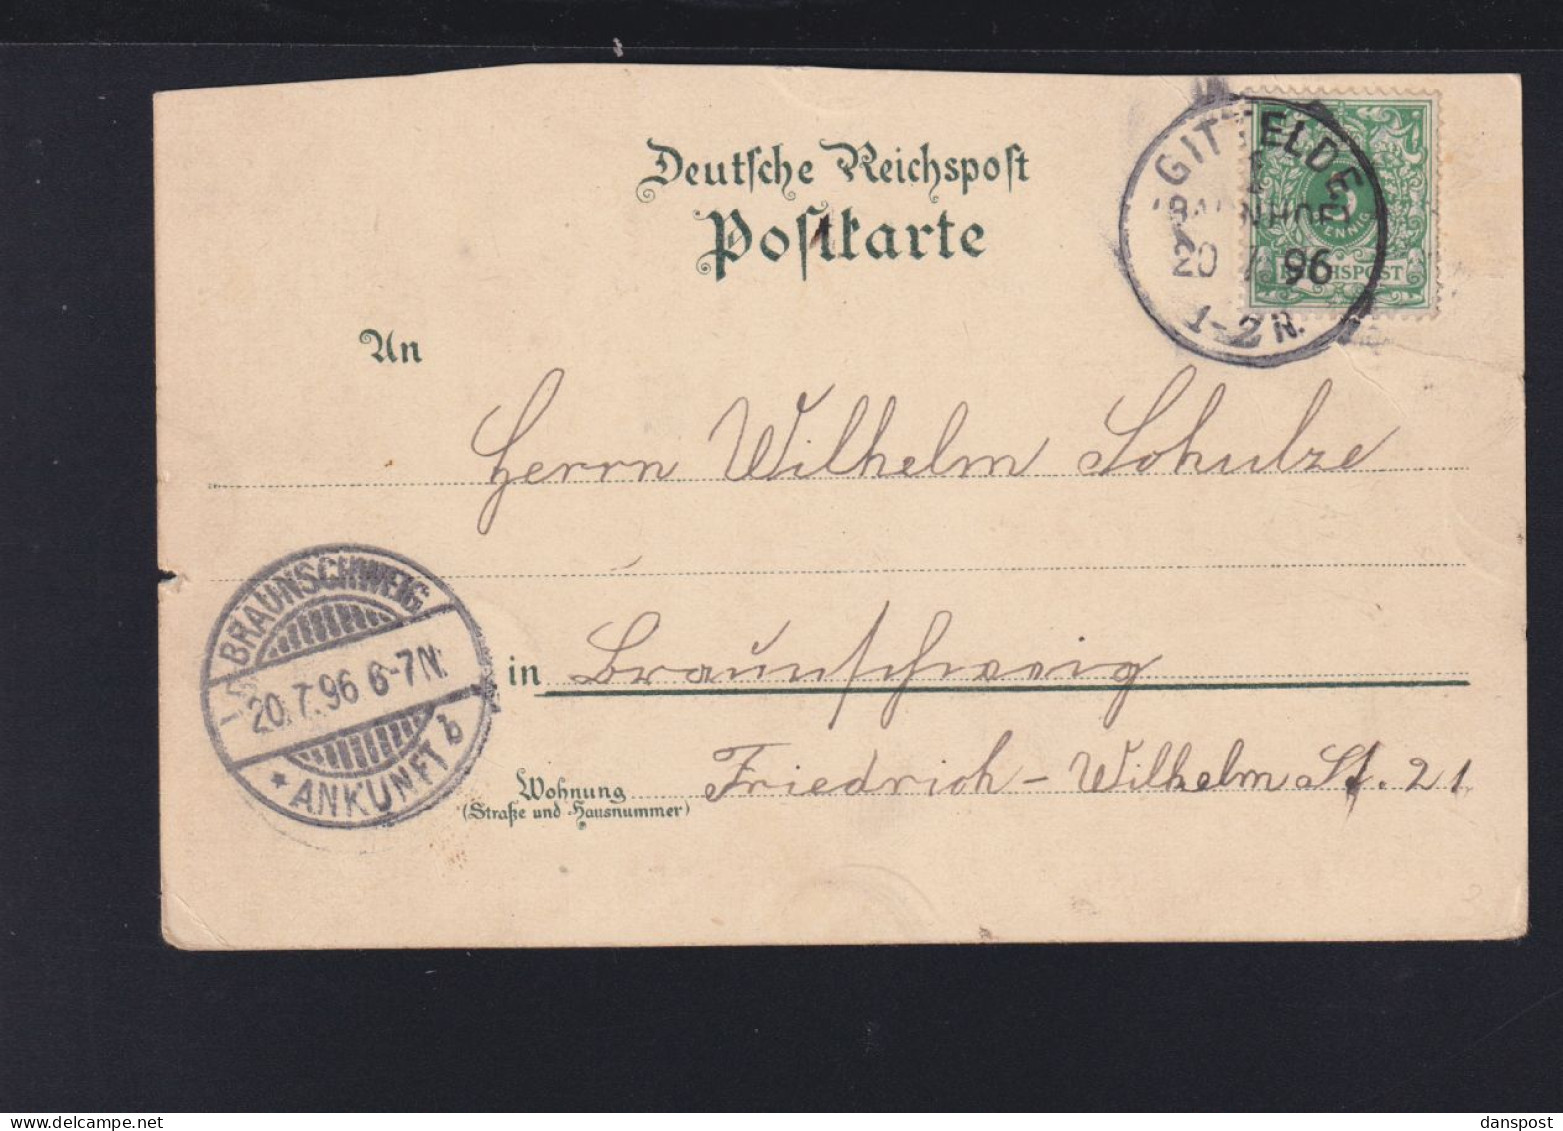 Deutsche Reichspost
Postkarte
GITTELDE
BAHNHOF
20 7 96
1-2 N.
5
PFENNIG
REICHSPOST
An
Herrn Wilhelm Schulze
BRAUNSCHWEIG
20.7.96 6-7N.
* ANKUNFT b
in Braunschweig
Wohnung
(Straße und Hausnummer)
Friedrich-Wilhelm St. 21.
danspost